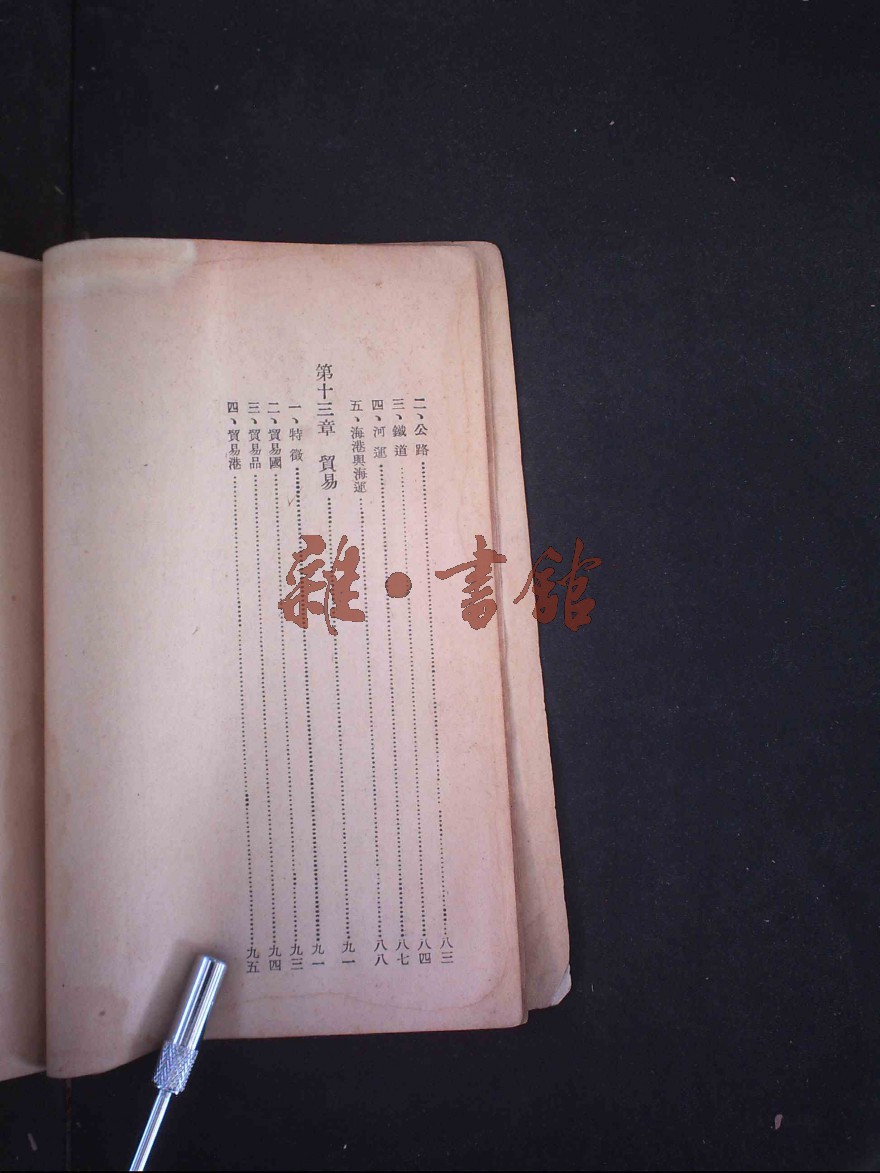 二、公路……八三
三、鐵道……八四
四、河運……八七
五、海港與海運……八八
第十三章　貿易……九一
一、特徵……九一
二、貿易國……九三
三、貿易品……九四
四、貿易港……九五
雜·書館